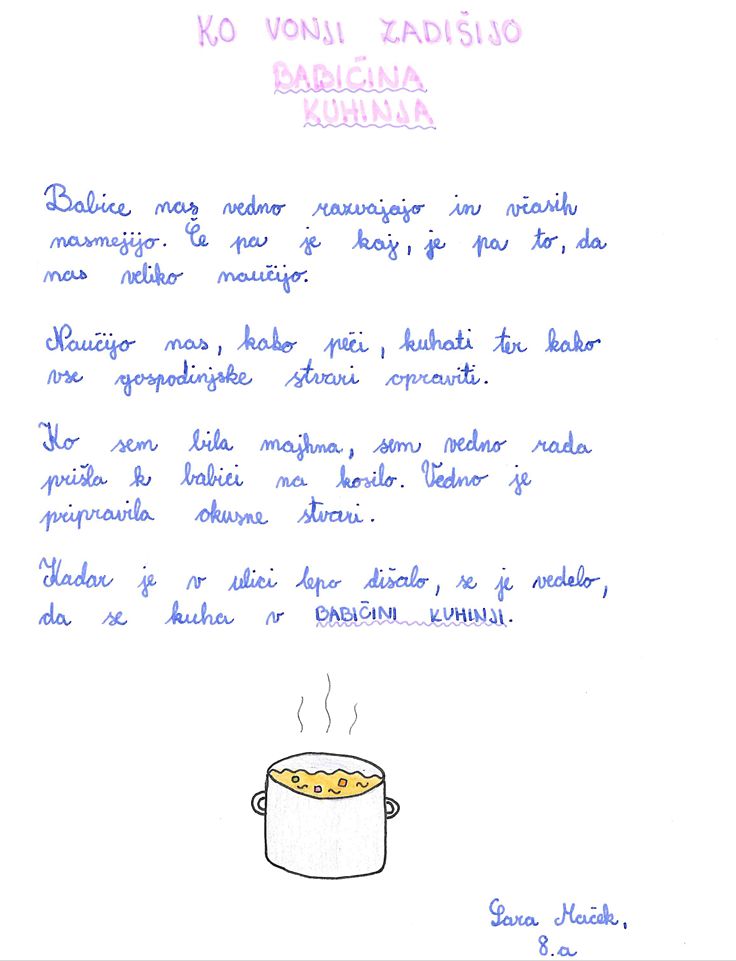 KO VONJI ZADIŠIJO
BABIČINA
KUHINJA
Babice nas vedno razvajajo in včasih
nasmejijo. Če pa je kaj, je pa to, da
nas veliko naučijo.
Naučijo nas, kako peči, kuhati ter kako
vse gospodinjske stvari opraviti.
Ko sem bila majhna, sem vedno rada
prišla k babici na kosilo. Vedno je
pripravila okusne stvari.
Kadar je v ulici lepo dišalo, se je vedelo,
da se kuha v BABIČINI KUHINJI.
Sara Maček,
8.a